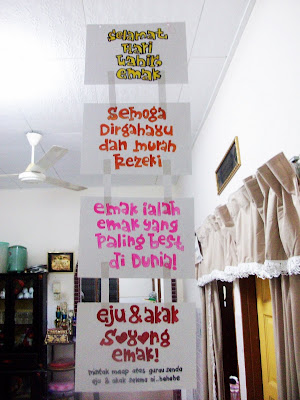 selamat
Hari
Lahir
emak
Semoga
Dirgahayu
dan murah
Rezeki
emak ialah
emak yang
paling best
di Dunia!
eju & akak
sayang
emak!
mintak maap atas gurau senda
eju & akak selama ni..hehehe